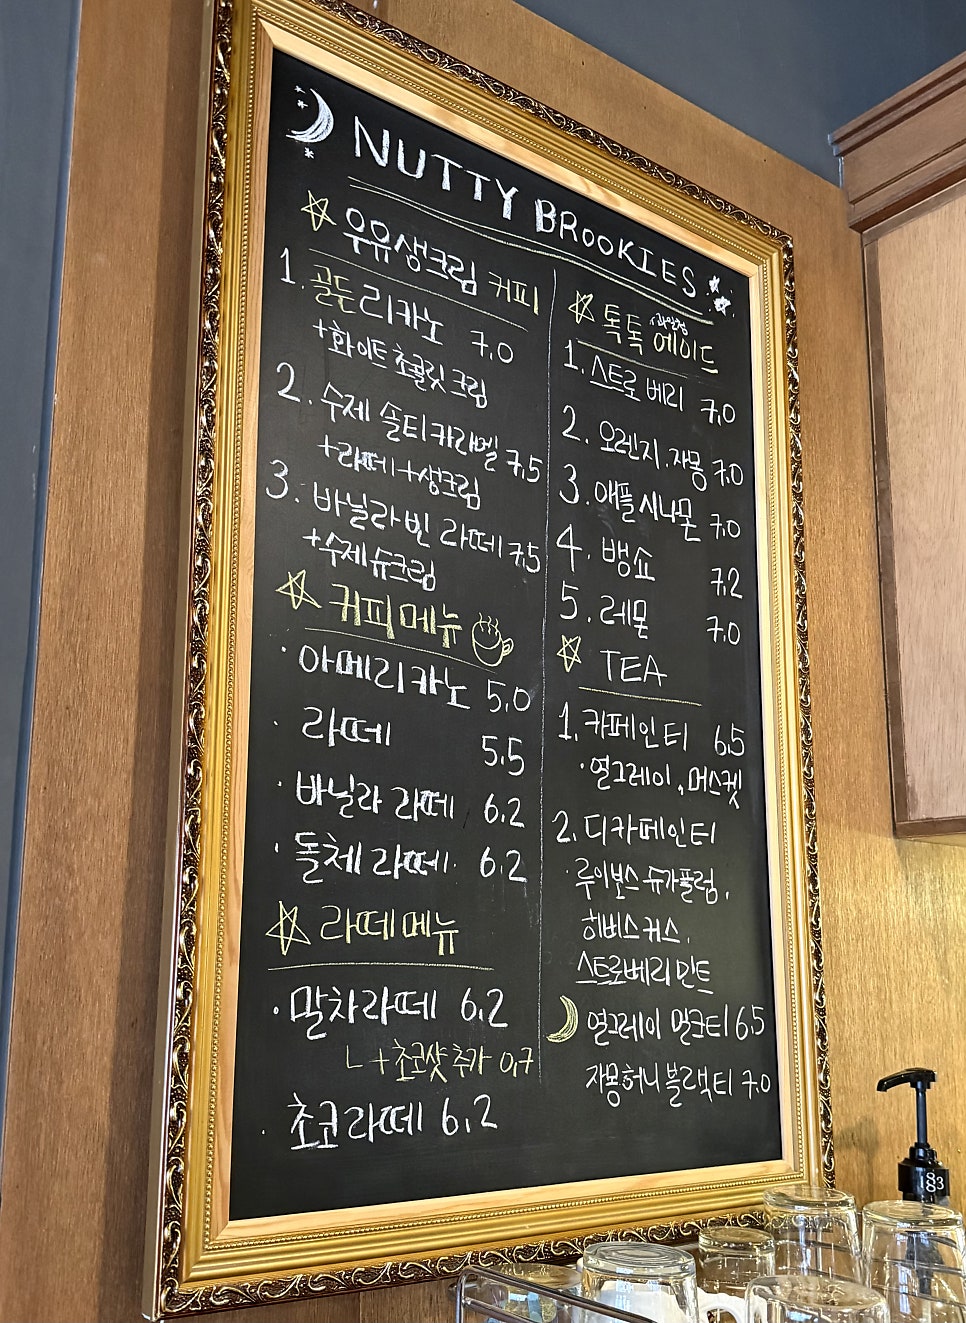 NUTTY BROOKIES
우유생크림 커피
1. 골든리카노 7.0
+화이트초콜릿크림
2. 수제 솔티카라멜 7.5
+라떼+생크림
3. 바닐라빈 라떼 7.5
+수제슈크림
커피메뉴
· 아메리카노 5.0
· 라떼 5.5
· 바닐라 라떼 6.2
· 돌체라떼. 6.2
라떼메뉴
· 말차라떼 6.2
ㄴ +초코샷 추가 0.7
· 초코라떼 6.2
톡톡 에이드
1. 스트로베리 7.0
2. 오렌지.자몽 7.0
3. 애플시나몬 7.0
4. 뱅쇼 7.2
5. 레몬 7.0
TEA
1. 카페인티 6.5
· 얼그레이, 머스켓
2. 디카페인티
· 루이보스 슈가플럼,
히비스커스,
스트로베리민트
얼그레이 밀크티 6.5
자몽허니블랙티 7.0
183